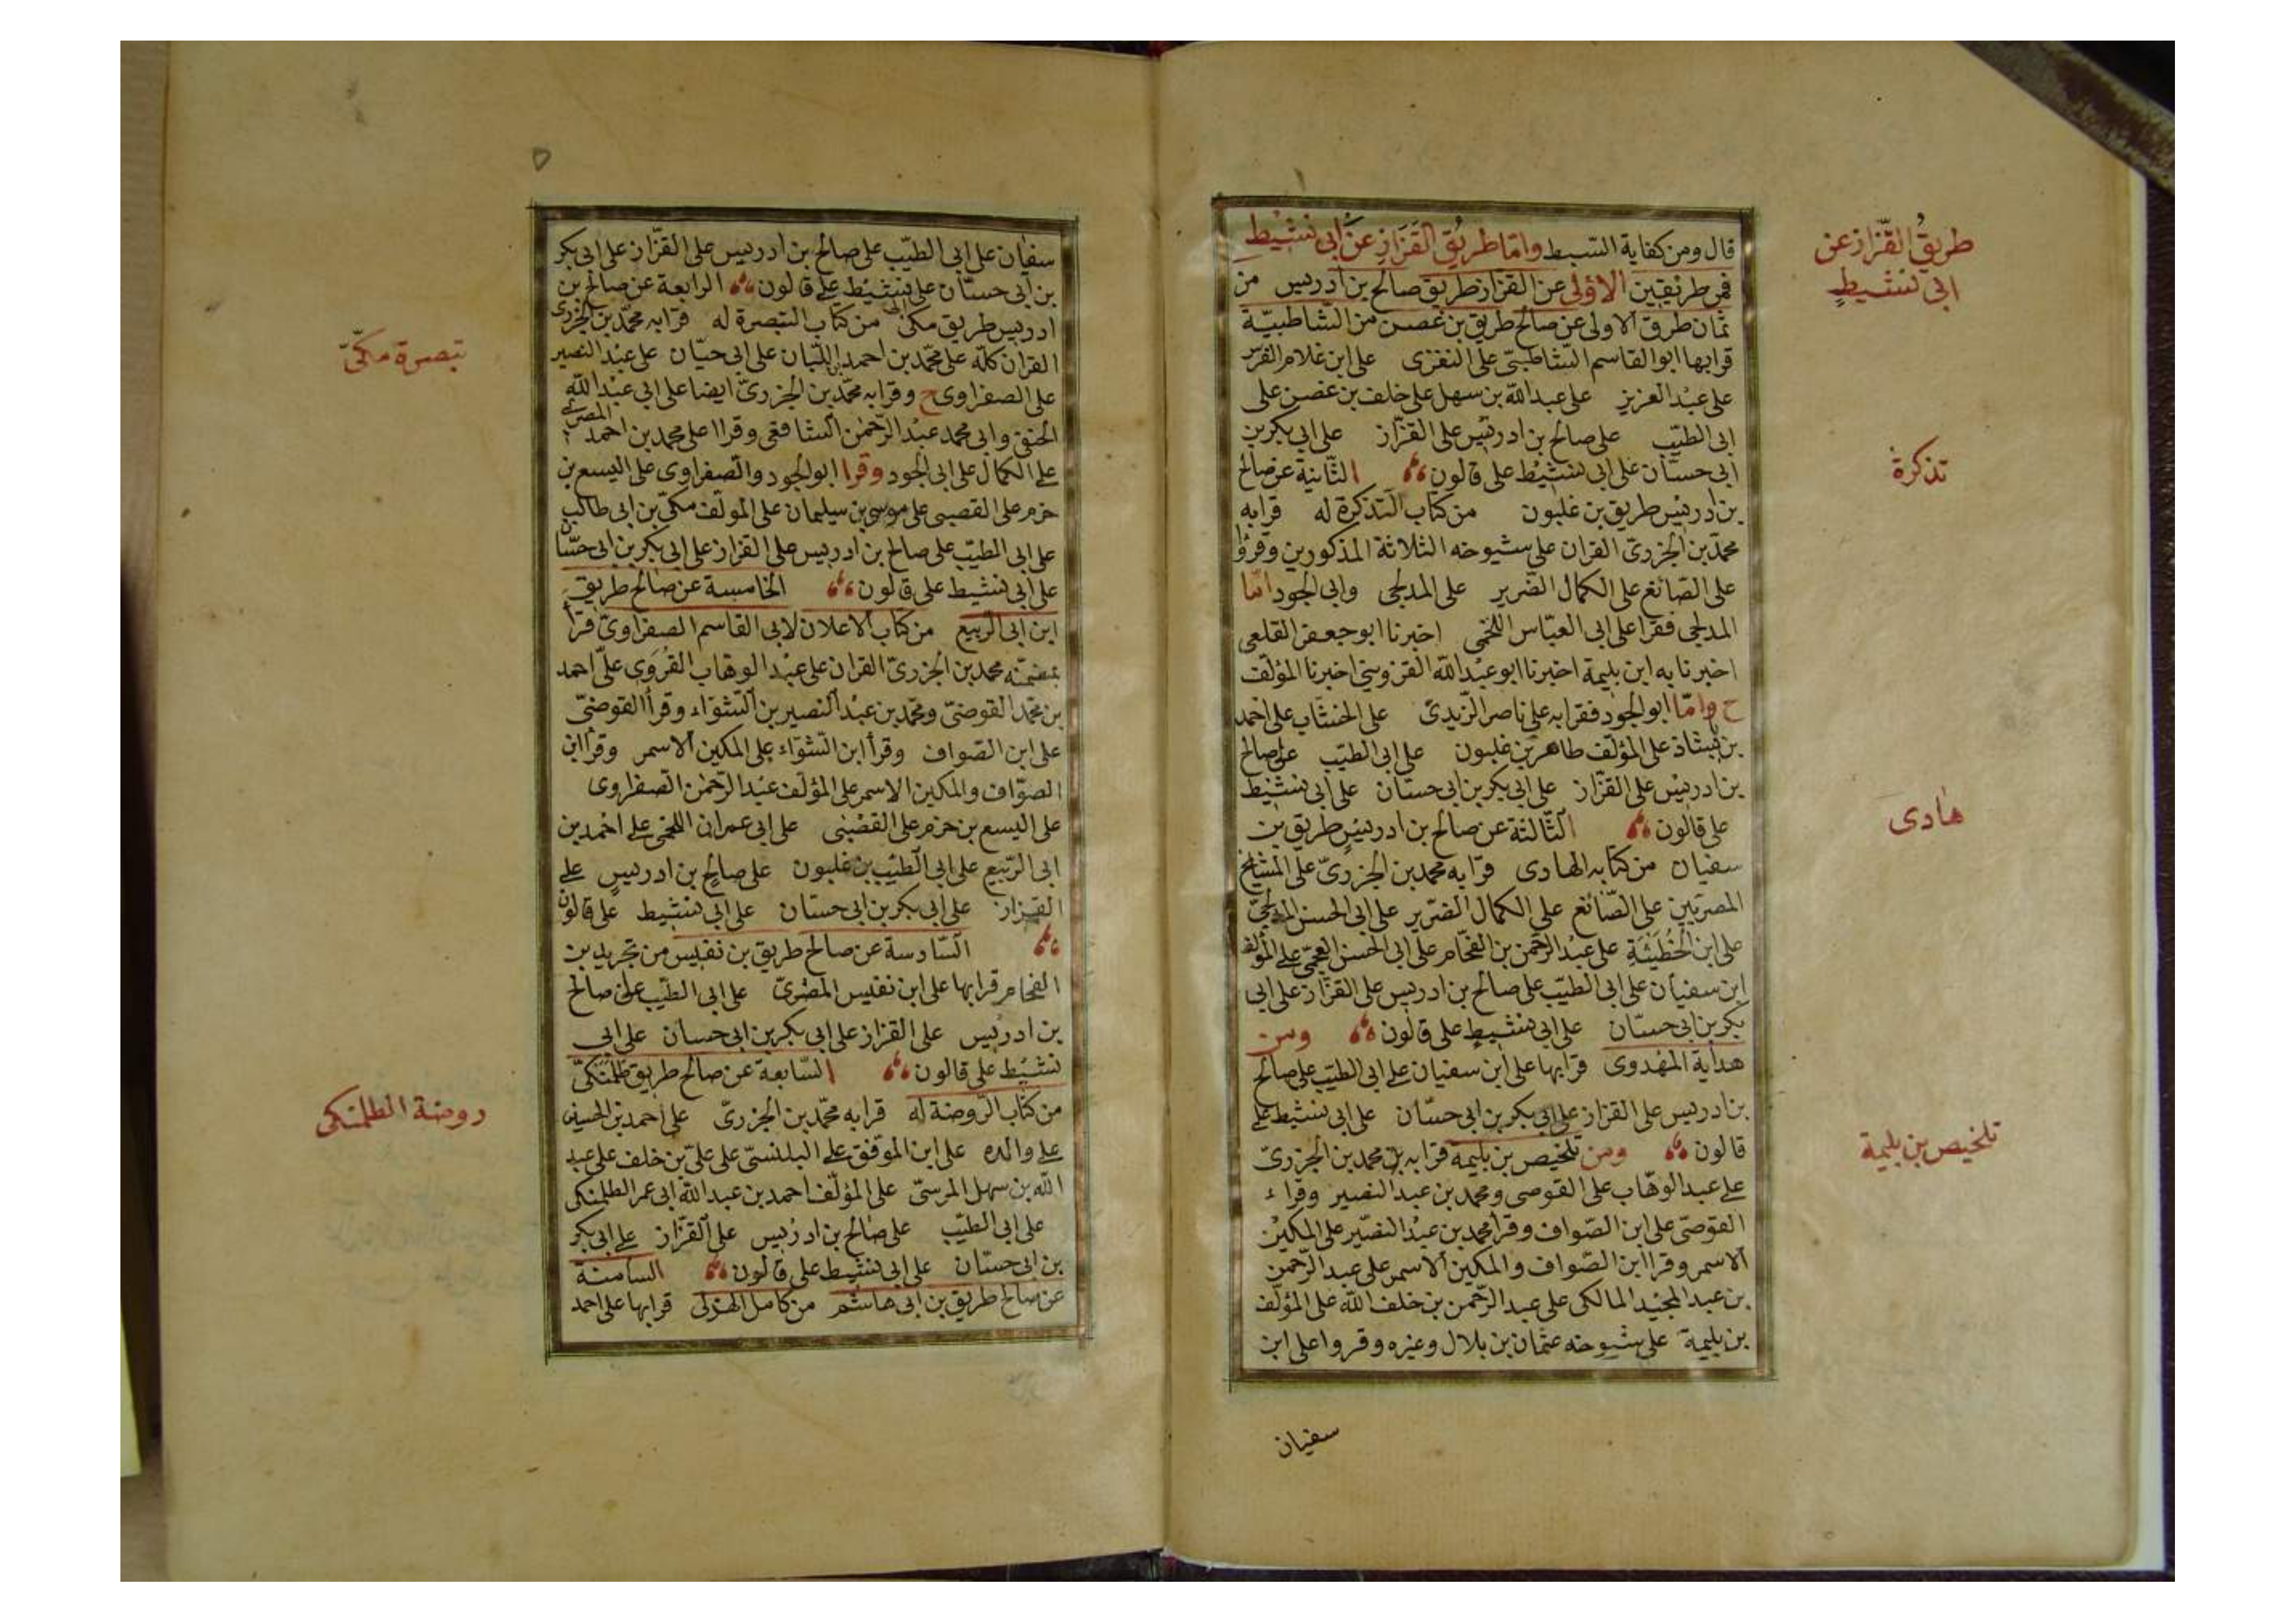 قال ومن كفاية السبط واما طريق القزاز عن ابى نشيط
فمن طريقين الاولى عن القزاز طريق صالح بن ادريس من
ثمان طرق الاولى عن صالح طريق بن غصن من الشاطبية
قرا بها ابو القاسم الشاطبى على النفزى على ابن غلام الفرس
على عبد العزيز على عبد الله بن سهل على خلف بن غصن على
ابى الطيب على صالح بن ادريس على القزاز على ابى بكر بن
ابى حسان على ابى نشيط على قالون الثانية عن صالح
بن ادريس طريق بن غلبون من كتاب التذكرة له قرا به
محمد بن الجزرى القران على شيوخه الثلاثة المذكورين وقرؤا
على الصائغ على الكمال الضرير على المدلجى وابى الجود اما
المدلجى فقرا على ابى العباس اللخمى اخبرنا ابو جعفر القلعى
اخبرنا به ابن بليمة اخبرنا ابو عبد الله القزوينى اخبرنا المؤلف
ح واما ابو الجود فقرا به على ناصر الزيدى على الخشاب على احمد
بن بابشاذ على المؤلف طاهر بن غلبون على ابى الطيب على صالح
بن ادريس على القزاز على ابى بكر بن ابى حسان على ابى نشيط
على قالون الثالثة عن صالح بن ادريس طريق بن
سفيان من كتابه الهادى قرا به محمد بن الجزرى على المشايخ
المصريين على الصائغ على الكمال الضرير على ابى الحسن المدلجى
على ابن الخطيئة على عبد الرحمن بن الفحام على ابى الحسن العجمى على المؤلف
ابن سفيان على ابى الطيب على صالح بن ادريس على القزاز على ابى
بكر بن ابى حسان على ابى نشيط على قالون ومن
هداية المهدوى قرا بها على ابن سفيان على ابى الطيب على صالح
بن ادريس على القزاز على ابى بكر بن ابى حسان على ابى نشيط على
قالون ومن تلخيص بن بليمة قرا به محمد بن الجزرى
على عبد الوهاب على القوصى ومحمد بن عبد النصير وقراء
القوصى على ابن الصواف وقرا محمد بن عبد النصير على المكين
الاسمر وقرا ابن الصواف والمكين الاسمر على عبد الرحمن
بن عبد المجيد المالكى على عبد الرحمن بن خلف الله على المؤلف
بن بليمة على شيوخه عثمان بن بلال وغيره وقروا على ابن
سفيان
طريق القزاز عن
ابى نشيط
تذكرة
هادى
تلخيص بن بليمة
سفيان على ابى الطيب على صالح بن ادريس على القزاز على ابى بكر
بن ابى حسان على نشيط على قالون الرابعة عن صالح بن
ادريس طريق مكى من كتاب التبصرة له قرا به محمد بن الجزرى
القران كله على محمد بن احمد اللبان على ابى حيان على عبد النصير
على الصفراوى ح وقرا به محمد بن الجزرى ايضا على ابى عبد الله
الحنفى وابى محمد عبد الرحمن الشافعى وقراا على محمد بن احمد المصرى
على الكمال على ابى الجود وقرا ابو الجود والصفراوى على اليسع بن
حزم على القصبى على موسى بن سيليمان على المؤلف مكى بن ابى طالب
على ابى الطيب على صالح بن ادريس على القزاز على ابى بكر بن ابى حسان
على ابى نشيط على قالون الخامسة عن صالح طريق
ابن ابى الربيع من كتاب الاعلان لابى القاسم الصفراوى قرأ
بمضمنه محمد بن الجزرى القران على عبد الوهاب القروى على احمد
بن محمد القوصى ومحمد بن عبد النصير بن الشواء وقرأ القوصى
على ابن الصواف وقرأ ابن الشواء على المكين الاسمر وقرأ ابن
الصواف والمكين الاسمر على المؤلف عبد الرحمن الصفراوى
على اليسع بن حزم على القصبى على ابى عمران اللخمى على احمد بن
ابى الربيع على ابى الطيب بن غلبون على صالح بن ادريس على
القزاز على ابى بكر بن ابى حسان على ابى نشيط على قالون
السادسة عن صالح طريق بن نفيس من تجريد بن
الفحام قرا بها على ابن نفيس المصرى على ابى الطيب على صالح
بن ادريس على القزاز على ابى بكر بن ابى حسان على ابى
نشيط على قالون السابعة عن صالح طريق طلمنكى
من كتاب الروضة له قرا به محمد بن الجزرى على احمد بن الحسين
على والده على ابن الموفق على البلنسى على على بن خلف على عبد
الله بن سهل المرسى على المؤلف احمد بن عبد الله ابى عمر الطلمنكى
على ابى الطيب على صالح بن ادريس على القزاز على ابى بكر
بن ابى حسان على ابى نشيط على قالون الثامنة
عن صالح طريق بن ابى هاشم من كامل الهزلى قرا بها على احمد
تبصرة مكى
روضة الطلمنكى